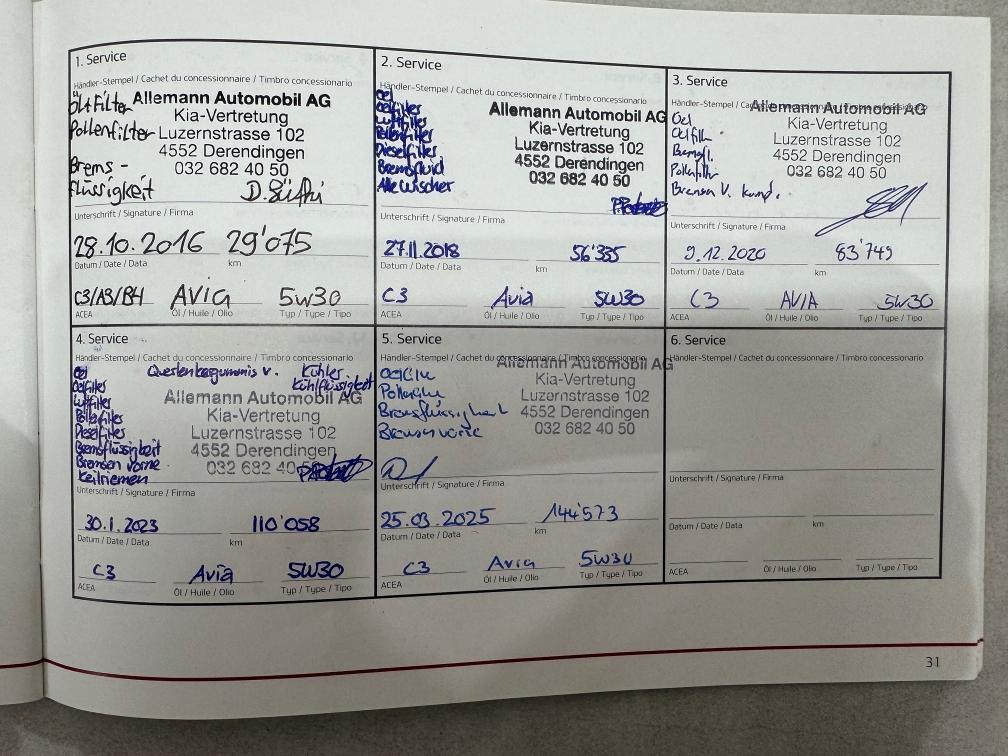 1. Service
Händler-Stempel / Cachet du concessionnaire / Timbro concessionario
Öl+Filter
Pollenfilter
Brems-
flüssigkeit
Allemann Automobil AG
Kia-Vertretung
Luzernstrasse 102
4552 Derendingen
032 682 40 50
Unterschrift / Signature / Firma
28.10.2016 29'075
Datum / Date / Data km
C3/A3/B4 AVIA 5W30
ACEA Öl / Huile / Olio Typ / Type / Tipo
2. Service
Händler-Stempel / Cachet du concessionnaire / Timbro concessionario
Oel
Oelfilter
Luftfilter
Pollenfilter
Dieselfilter
Bremsfluid
Alle Wischer
Allemann Automobil AG
Kia-Vertretung
Luzernstrasse 102
4552 Derendingen
032 682 40 50
Unterschrift / Signature / Firma
27.11.2018 56'335
Datum / Date / Data km
C3 Avia 5W30
ACEA Öl / Huile / Olio Typ / Type / Tipo
3. Service
Händler-Stempel / Cachet du concessionnaire / Timbro concessionario
Oel
Oelfilt.
Bremsfl.
Pollenfilt.
Bremsen V. kompl.
Allemann Automobil AG
Kia-Vertretung
Luzernstrasse 102
4552 Derendingen
032 682 40 50
Unterschrift / Signature / Firma
9.12.2020 83'749
Datum / Date / Data km
C3 AVIA 5W30
ACEA Öl / Huile / Olio Typ / Type / Tipo
4. Service
Händler-Stempel / Cachet du concessionnaire / Timbro concessionario
Oel
Oelfilter
Luftfilter
Pollenfilter
Dieselfilter
Bremsflüssigkeit
Bremsen vorne
Keilriemen
v. Kühler
Kühlflüssigkeit
Allemann Automobil AG
Kia-Vertretung
Luzernstrasse 102
4552 Derendingen
032 682 40
Unterschrift / Signature / Firma
30.1.2023 110'058
Datum / Date / Data km
C3 Avia 5W30
ACEA Öl / Huile / Olio Typ / Type / Tipo
5. Service
Händler-Stempel / Cachet du concessionnaire / Timbro concessionario
Bremsflüssigkeit
Bremsen vorne
Allemann Automobil AG
Kia-Vertretung
Luzernstrasse 102
4552 Derendingen
032 682 40 50
Unterschrift / Signature / Firma
25.03.2025 144'573
Datum / Date / Data km
C3 Avia 5W30
ACEA Öl / Huile / Olio Typ / Type / Tipo
6. Service
Händler-Stempel / Cachet du concessionnaire / Timbro concessionario
Unterschrift / Signature / Firma
Datum / Date / Data km
ACEA Öl / Huile / Olio Typ / Type / Tipo
31